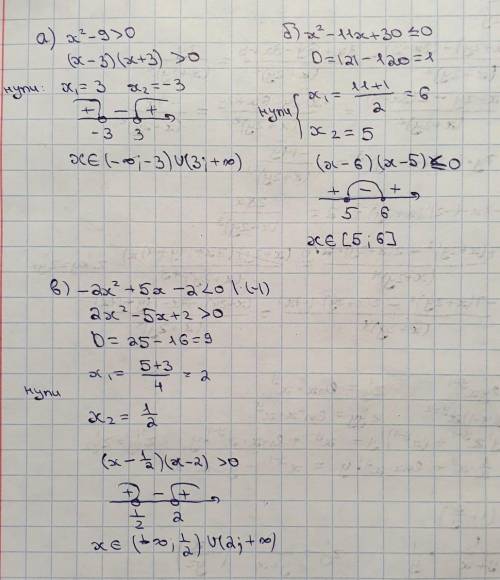 а) x²-9>0
(x-3)(x+3)>0
нули: x₁=3 x₂=-3
+ - +
-3 3
x∈(-∞;-3)∪(3;+∞)
б) x²-11x+30≤0
D=121-120=1
нули x₁=(11+1)/2=6
x₂=5
(x-6)(x-5)≤0
+ - +
5 6
x∈[5;6]
в) -2x²+5x-2<0 |·(-1)
2x²-5x+2>0
D=25-16=9
x₁=(5+3)/4=2
нули
x₂=1/2
(x-1/2)(x-2)>0
+ - +
1/2 2
x∈(-∞,1/2)∪(2;+∞)